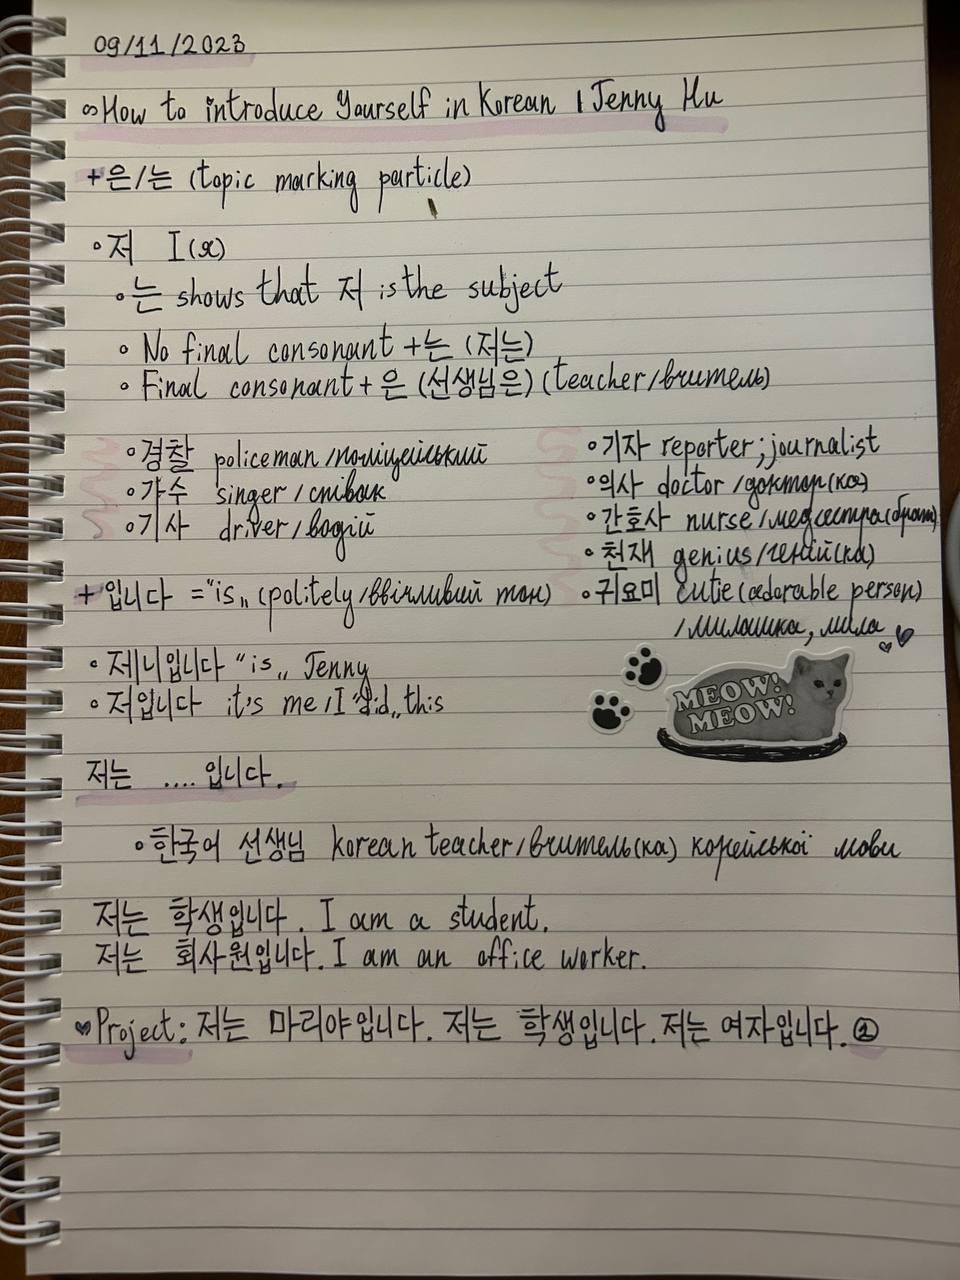 09/11/2023
How to introduce Yourself in Korean | Jenny Hu
+은/는 (topic marking particle)
◦저 I(я)
◦는 shows that 저 is the subject
◦ No final consonant +는 (저는)
◦ Final consonant + 은 (선생님은) (teacher/вчитель)
◦경찰 policeman/поліцейський
◦가수 singer/співак
◦기사 driver/водій
◦기자 reporter; journalist
◦의사 doctor/доктор(ка)
◦간호사 nurse/медсестра(брат)
◦천재 genius/геній(ка)
◦귀요미 cutie(adorable person)
/милашка, мила
+입니다 ="is„ (politely/ввічливий тон)
◦제니입니다 "is„ Jenny
◦저입니다 it's me/I "did„ this
MEOW!
MEOW!
저는 ....입니다.
◦한국어 선생님 korean teacher/вчитель(ка) корейської мови
저는 학생입니다. I am a student.
저는 회사원입니다. I am an office worker.
Project: 저는 마리야입니다. 저는 학생입니다. 저는 여자입니다. ①